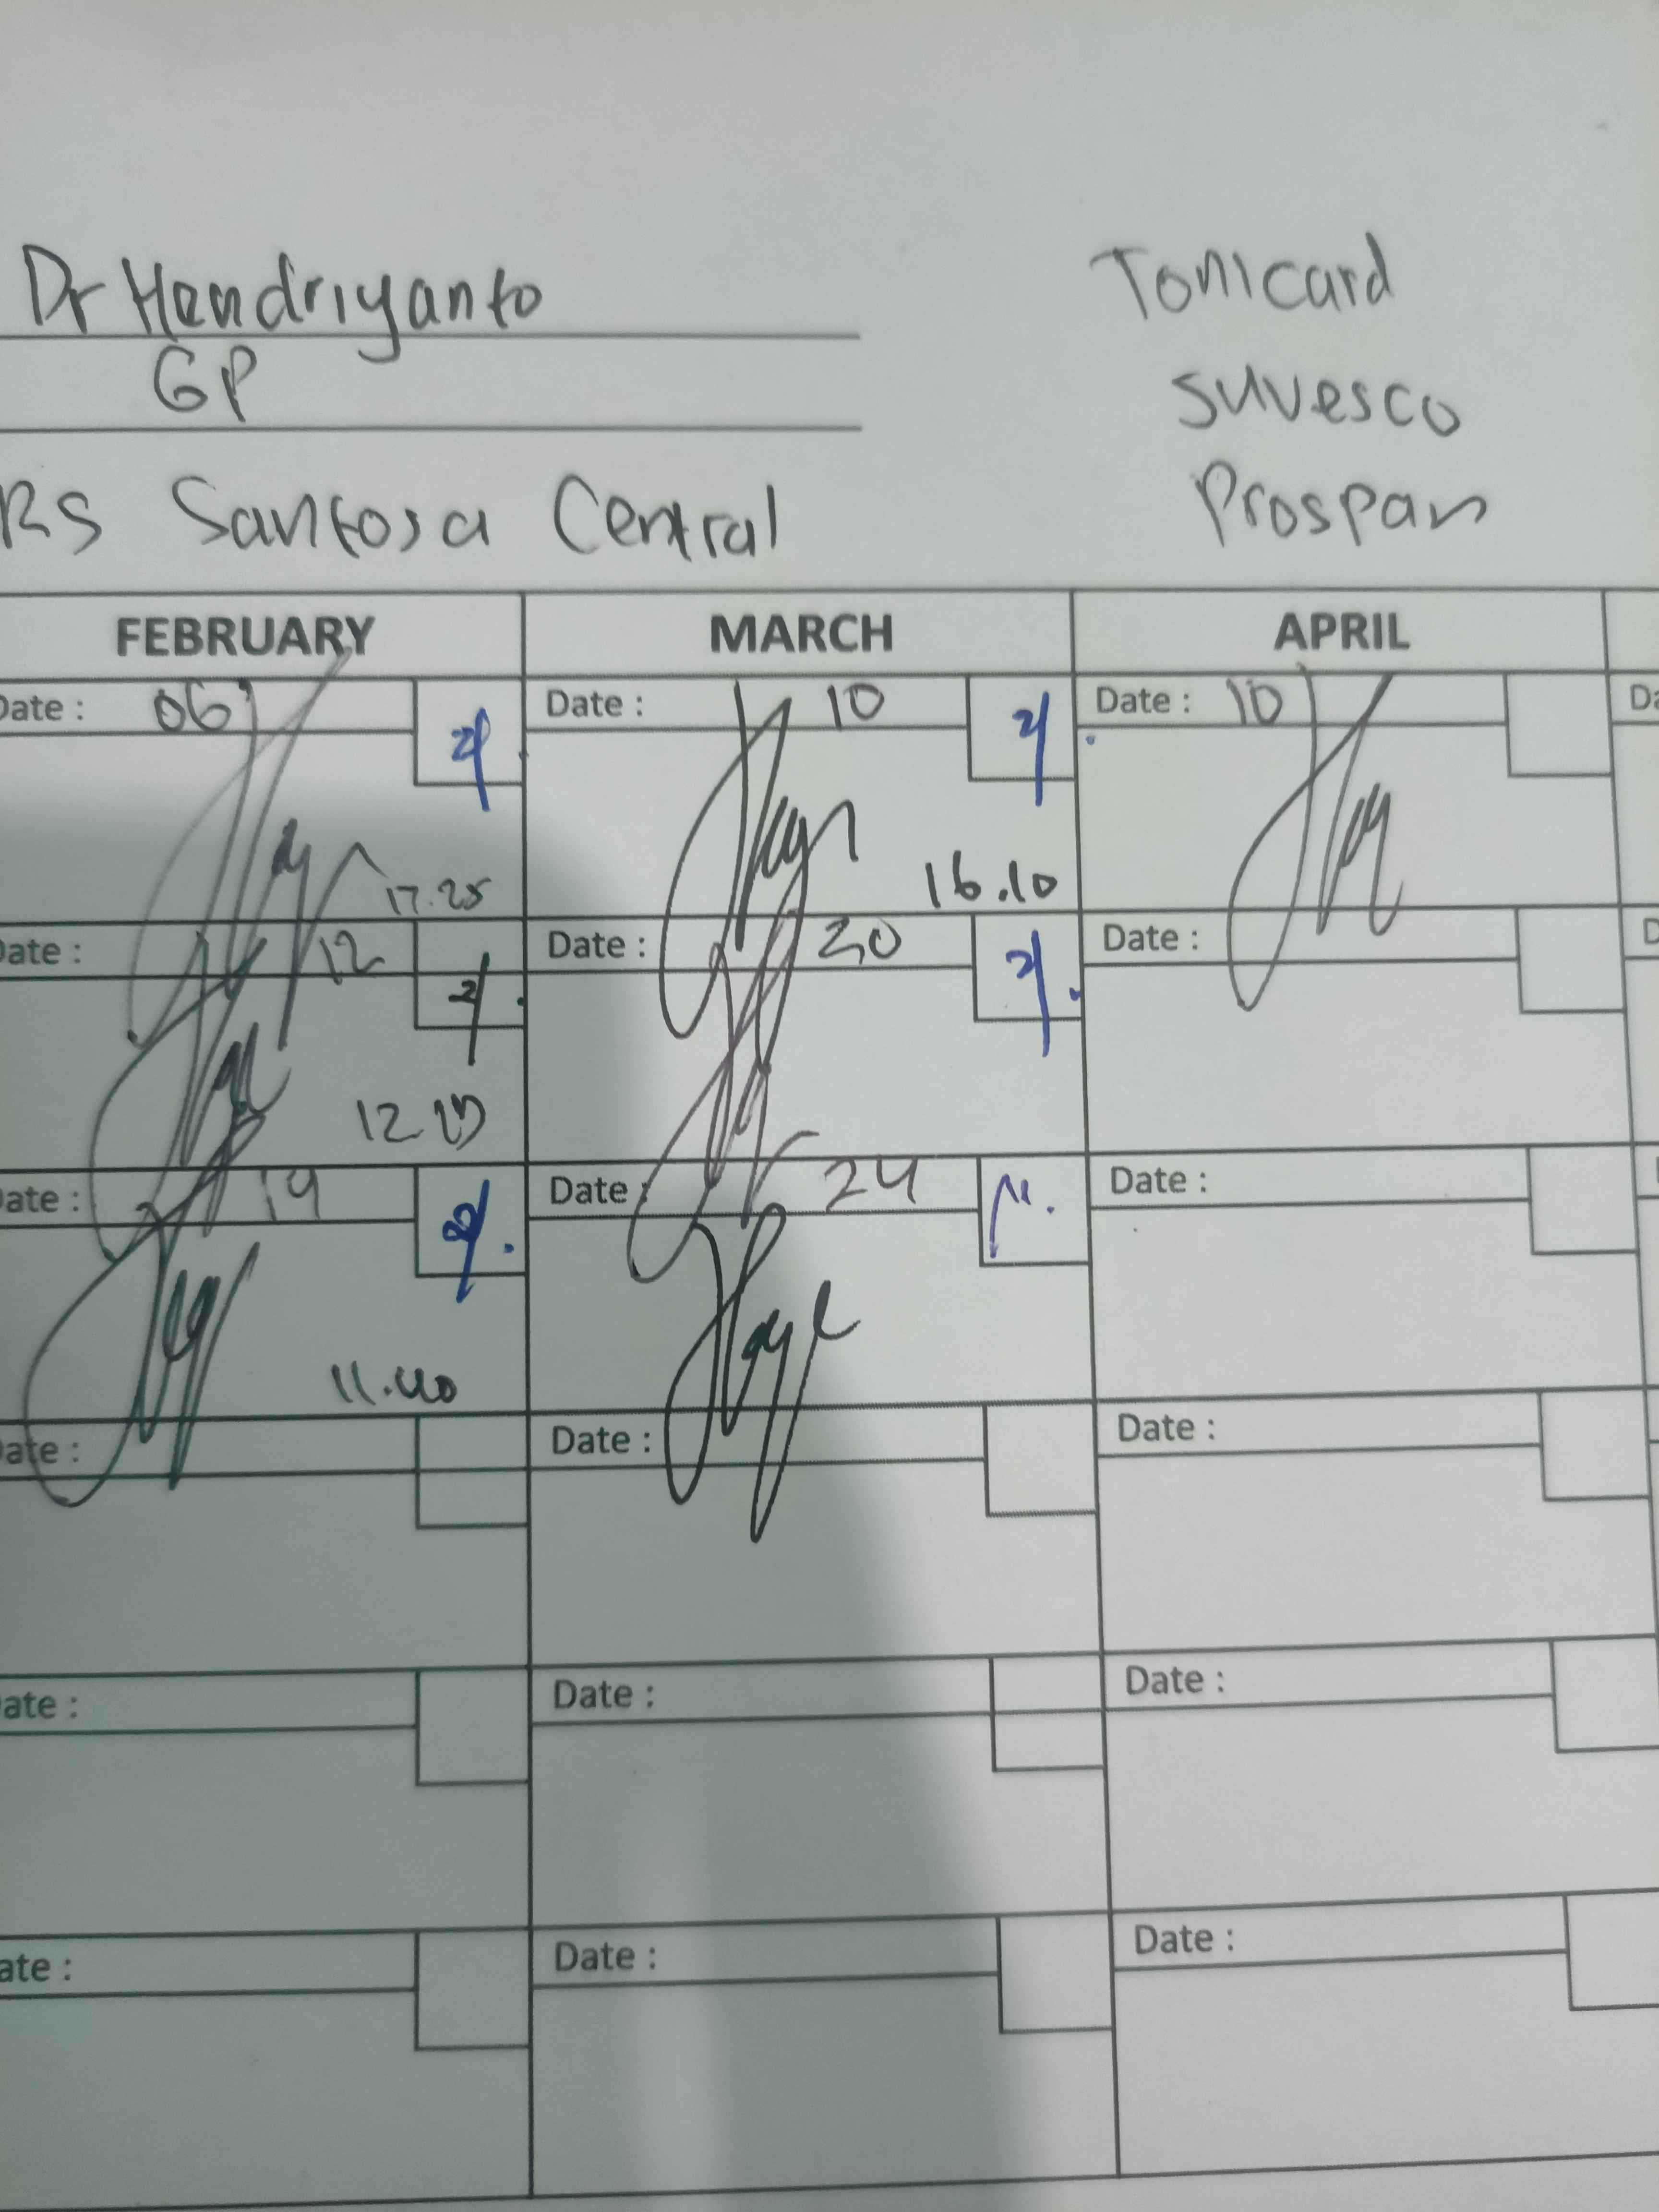 Dr Hendriyanto
GP
RS Santosa Central
Tonicard
Suvesco
Prospan
FEBRUARY MARCH APRIL
Date : 06 Date : 10 Date : 10
17.25 16.10
Date : 12 Date : 20 Date :
12
Date : 19 Date : 24 Date :
11.40
Date : Date : Date :
Date : Date : Date :
Date : Date : Date :